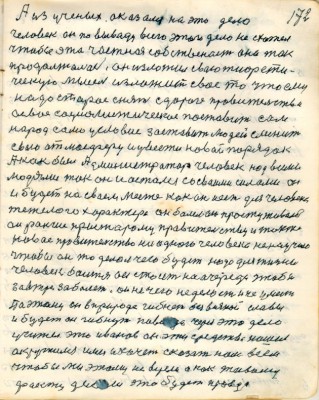 172
А из ученых оказался на это дело
человек он по выводу всего этого дело не схотел
чтобы эта частная собственост она так
продолжалась, он изложи свою теорети-
ческую мысел изложить свое то что ему
надо старое снять с дороги провительства
а новое социолистическое поставить сам
народ само условие заставит людей сменить
свою атмосферу и увести новой порядок
А как был Администратор человек над всеми
людями так он и остался со своими силами он
и будет на своем месте как он есть для человека
тежолого характера он болел он простуживался
он раньше при старому правительству и тоже
новое правительство ни одного человека не научило
чтобы он то делал чего будет надо для жизни
человек боится он стоит на очереди чтобы
завтра заболеть. он нечего не делает и не умеет
Поэтому он в природе гибнет он всякой
и будет он гибнуть через это дело
учитель это иванов он эти средства нашел
окружил ими и хочет сказать нам всем
чтобы мы этому не верили а как живому
факту делали это будет правда